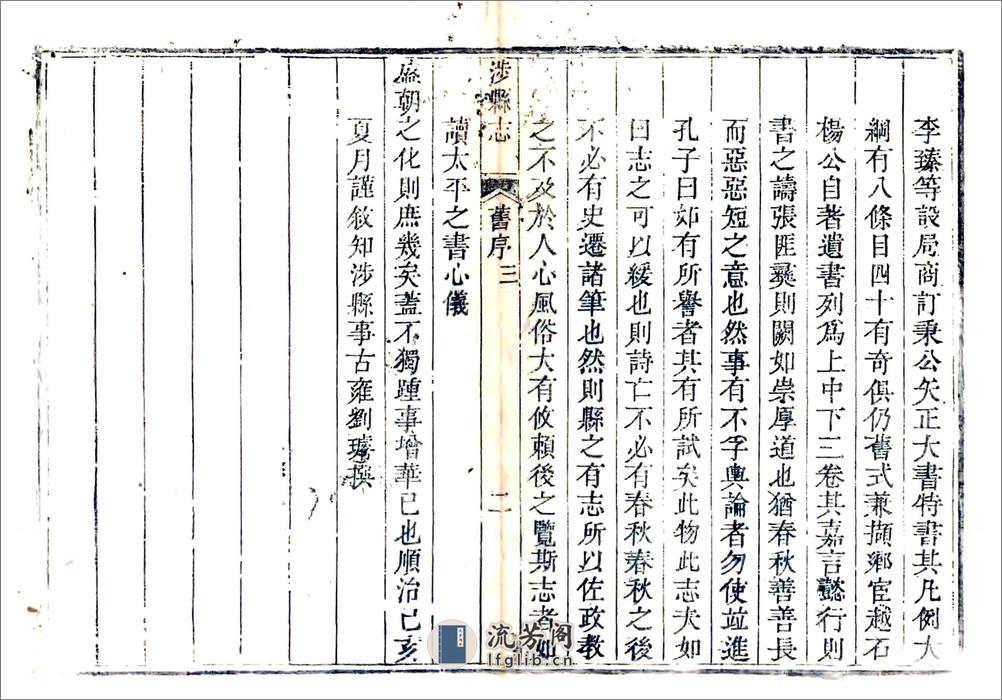 李臻等設局商訂秉公矢正大書特書其凡例大
綱有八條目四十有奇俱仍舊式兼擷鄉宦越石
楊公自著遺書列為上中下三卷其嘉言懿行則
書之譸張匪彞則闕如崇厚道也猶春秋善善長
而惡惡短之意也然事有不孚輿論者勿使並進
孔子曰如有所譽者其有所試矣此物此志夫如
曰志之可以緩也則詩亡不必有春秋春秋之後
不必有史遷諸筆也然則縣之有志所以佐政教
之不及於人心風俗大有攸頼後之覽斯志者如
涉縣志 舊序三 二
讀太平之書心儀
朝之化則庶幾矣蓋不獨踵事增華已也順治己亥
夏月謹敘知涉縣事古雍劉璿撰
流芳閣
lfglib.cn